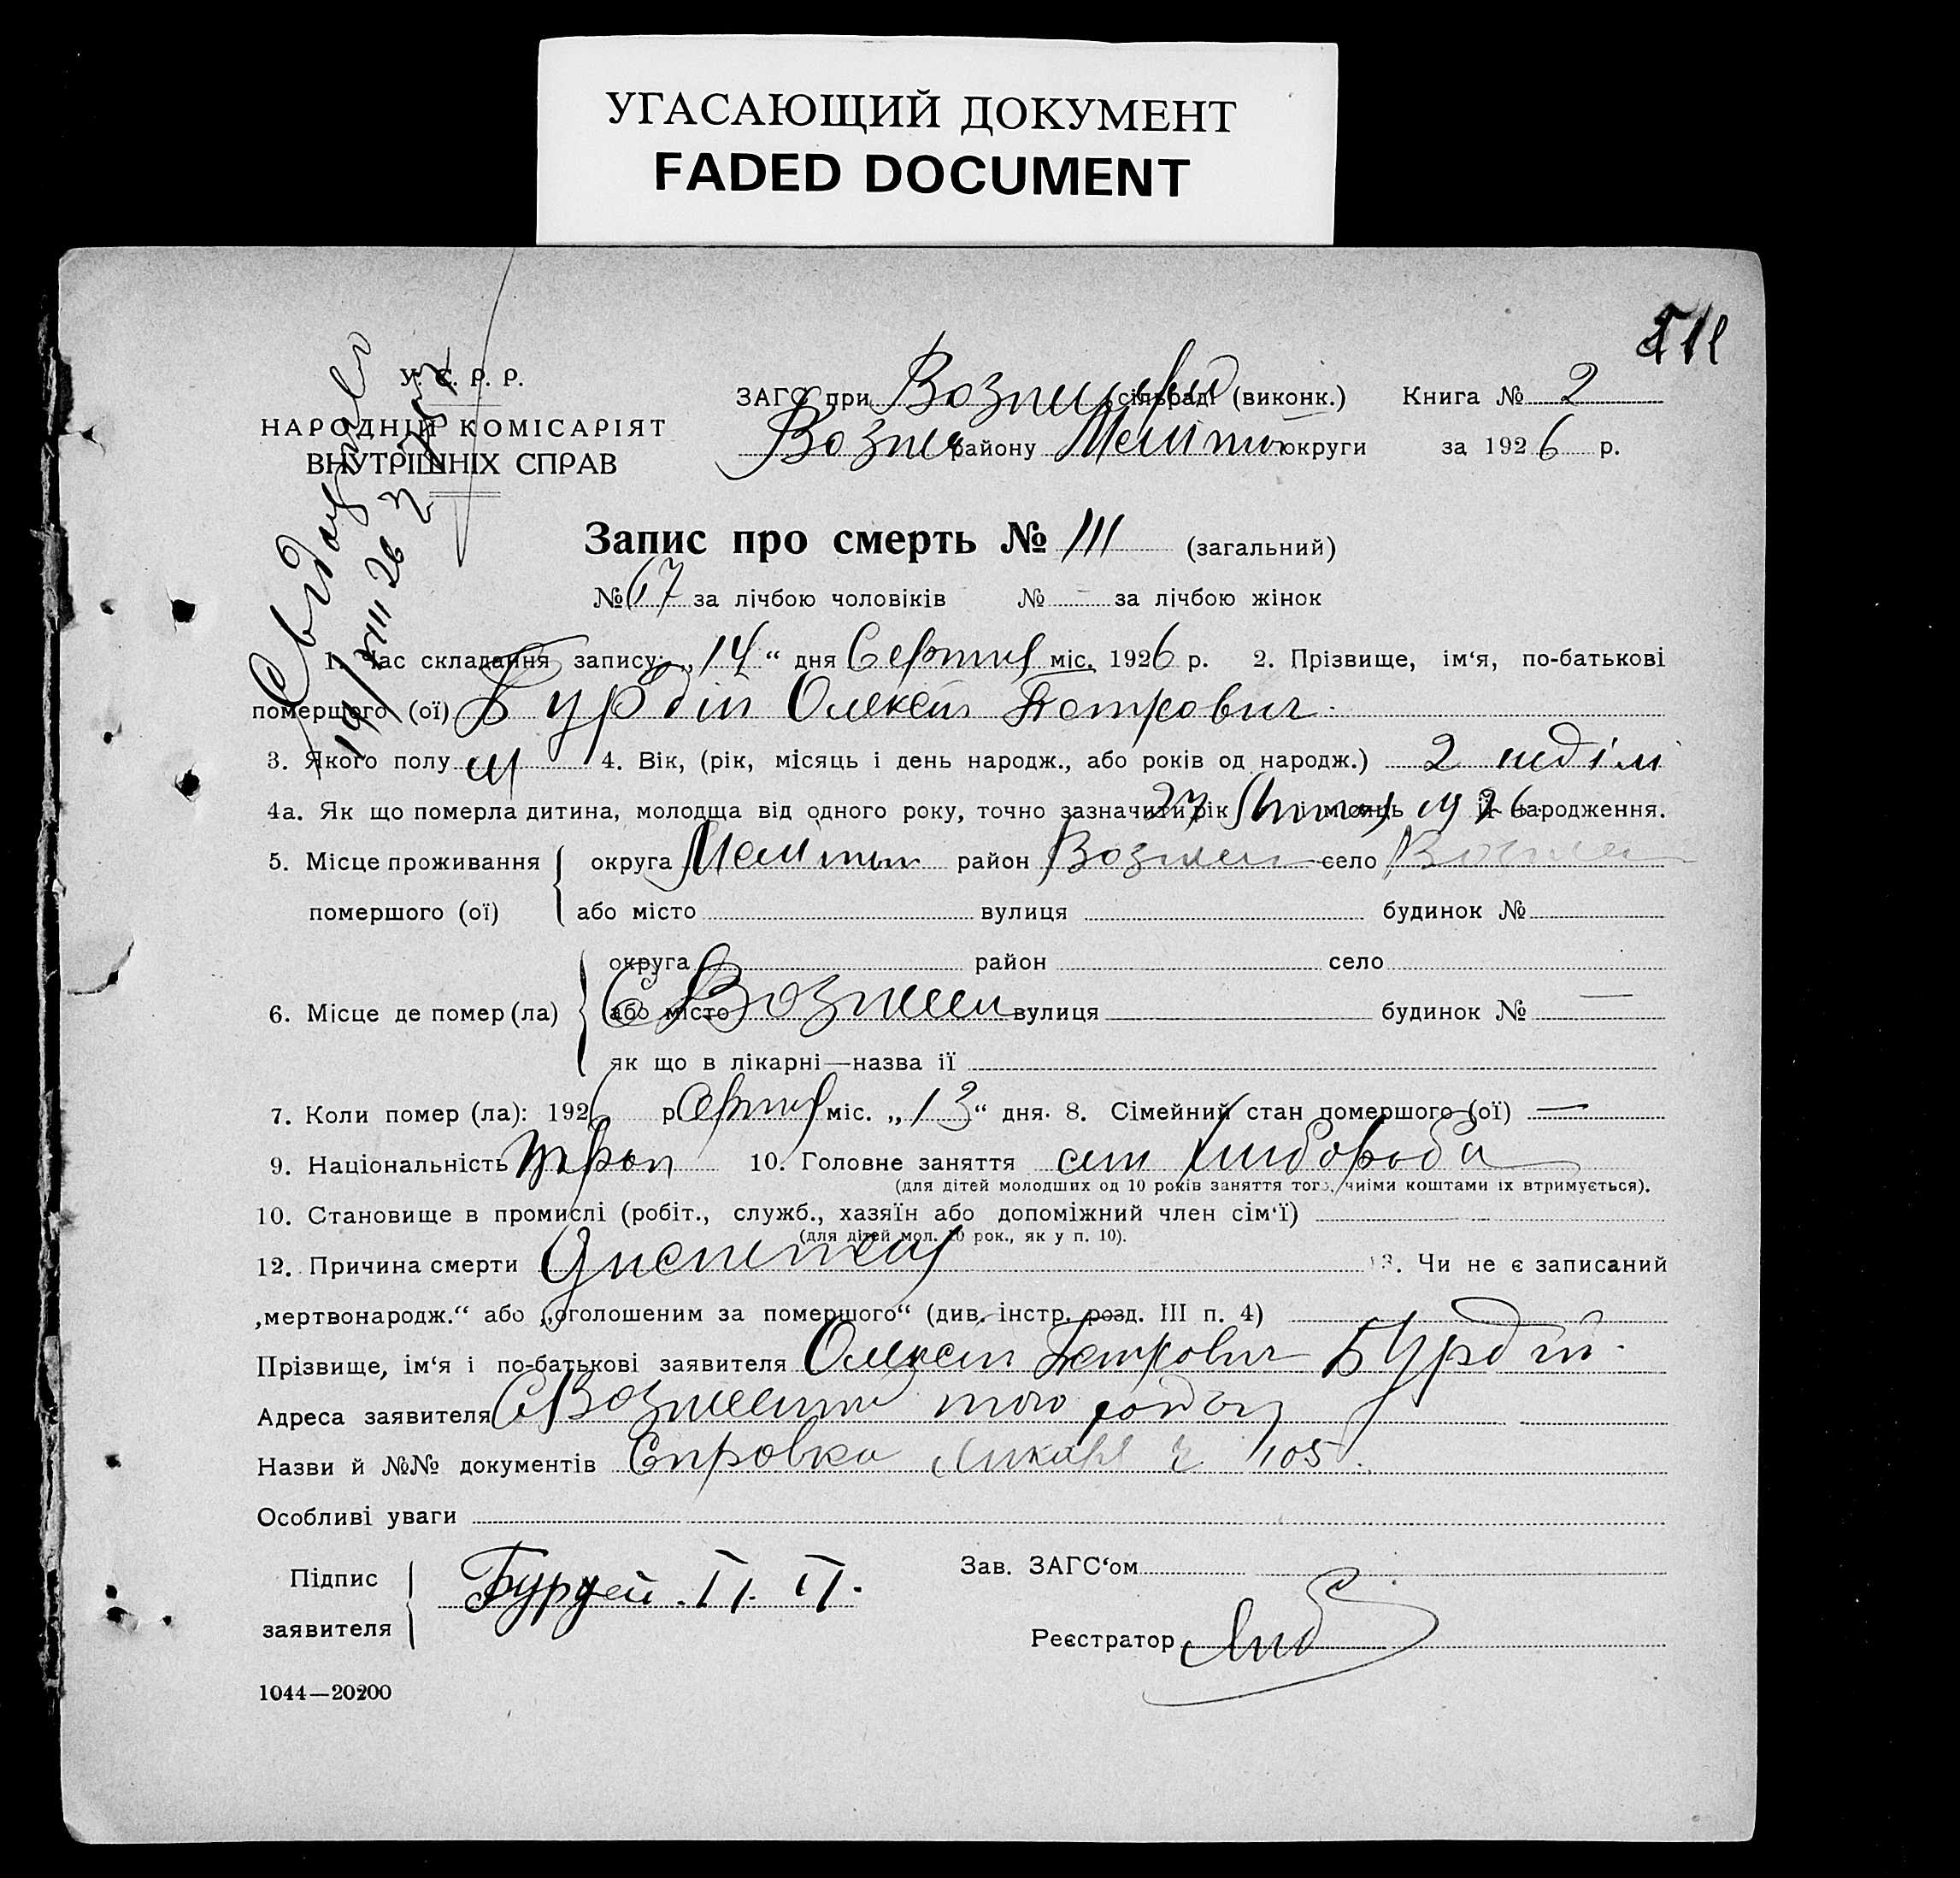 УГАСАЮЩИЙ ДОКУМЕНТ
FADED DOCUMENT
У. С. Р. Р.
НАРОДНІЙ КОМІСАРІЯТ
ВНУТРІШНІХ СПРАВ
ЗАГС при сільраді (виконк.) Книга № 2
Возне району Меліт округи за 1926 р.
Запис про смерть № 111 (загальний)
№ 67 за лічбою чоловіків № - за лічбою жінок
1. Час складання запису: „14“ дня Серпня міс. 1926 р. 2. Прізвище, ім‘я, по-батькові
помершого (ої) Бурдій Олексій Петрович
3. Якого полу Ч 4. Вік, (рік, місяць і день народж., або років од народж.) 2 неділі
4а. Як що померла дитина, молодща від одного року, точно зазначити рік і місяць її народження. 27 1926
5. Місце проживання округа Меліт район Возне село Возне
помершого (ої) або місто вулиця будинок №
округа район село
6. Місце де помер (ла) або місто С Вознесен вулиця будинок № —
як що в лікарні—назва її
7. Коли помер (ла): 1926 р Серпня міс. „13“ дня. 8. Сімейний стан помершого (ої) —
9. Національність 10. Головне заняття сел хлібороба
(для дітей молодших од 10 років заняття того, чиіми коштами іх втримується).
10. Становище в промислі (робіт., служб., хазяїн або допоміжний член сім‘ї)
(для дітей мол. 10 рок., як у п. 10).
12. Причина смерти Диспепсія 13. Чи не є записаний
„мертвонародж.“ або „оголошеним за помершого“ (див. інстр. розд. III п. 4)
Прізвище, ім‘я і по-батькові заявителя Олексій Петрович Бурдій
Адреса заявителя С Вознесенка того району
Назви й №№ документів Справка Лікаря 105
Особливі уваги
Підпис Бурдей П. П. Зав. ЗАГС‘ом
заявителя Реєстратор
1044—20200